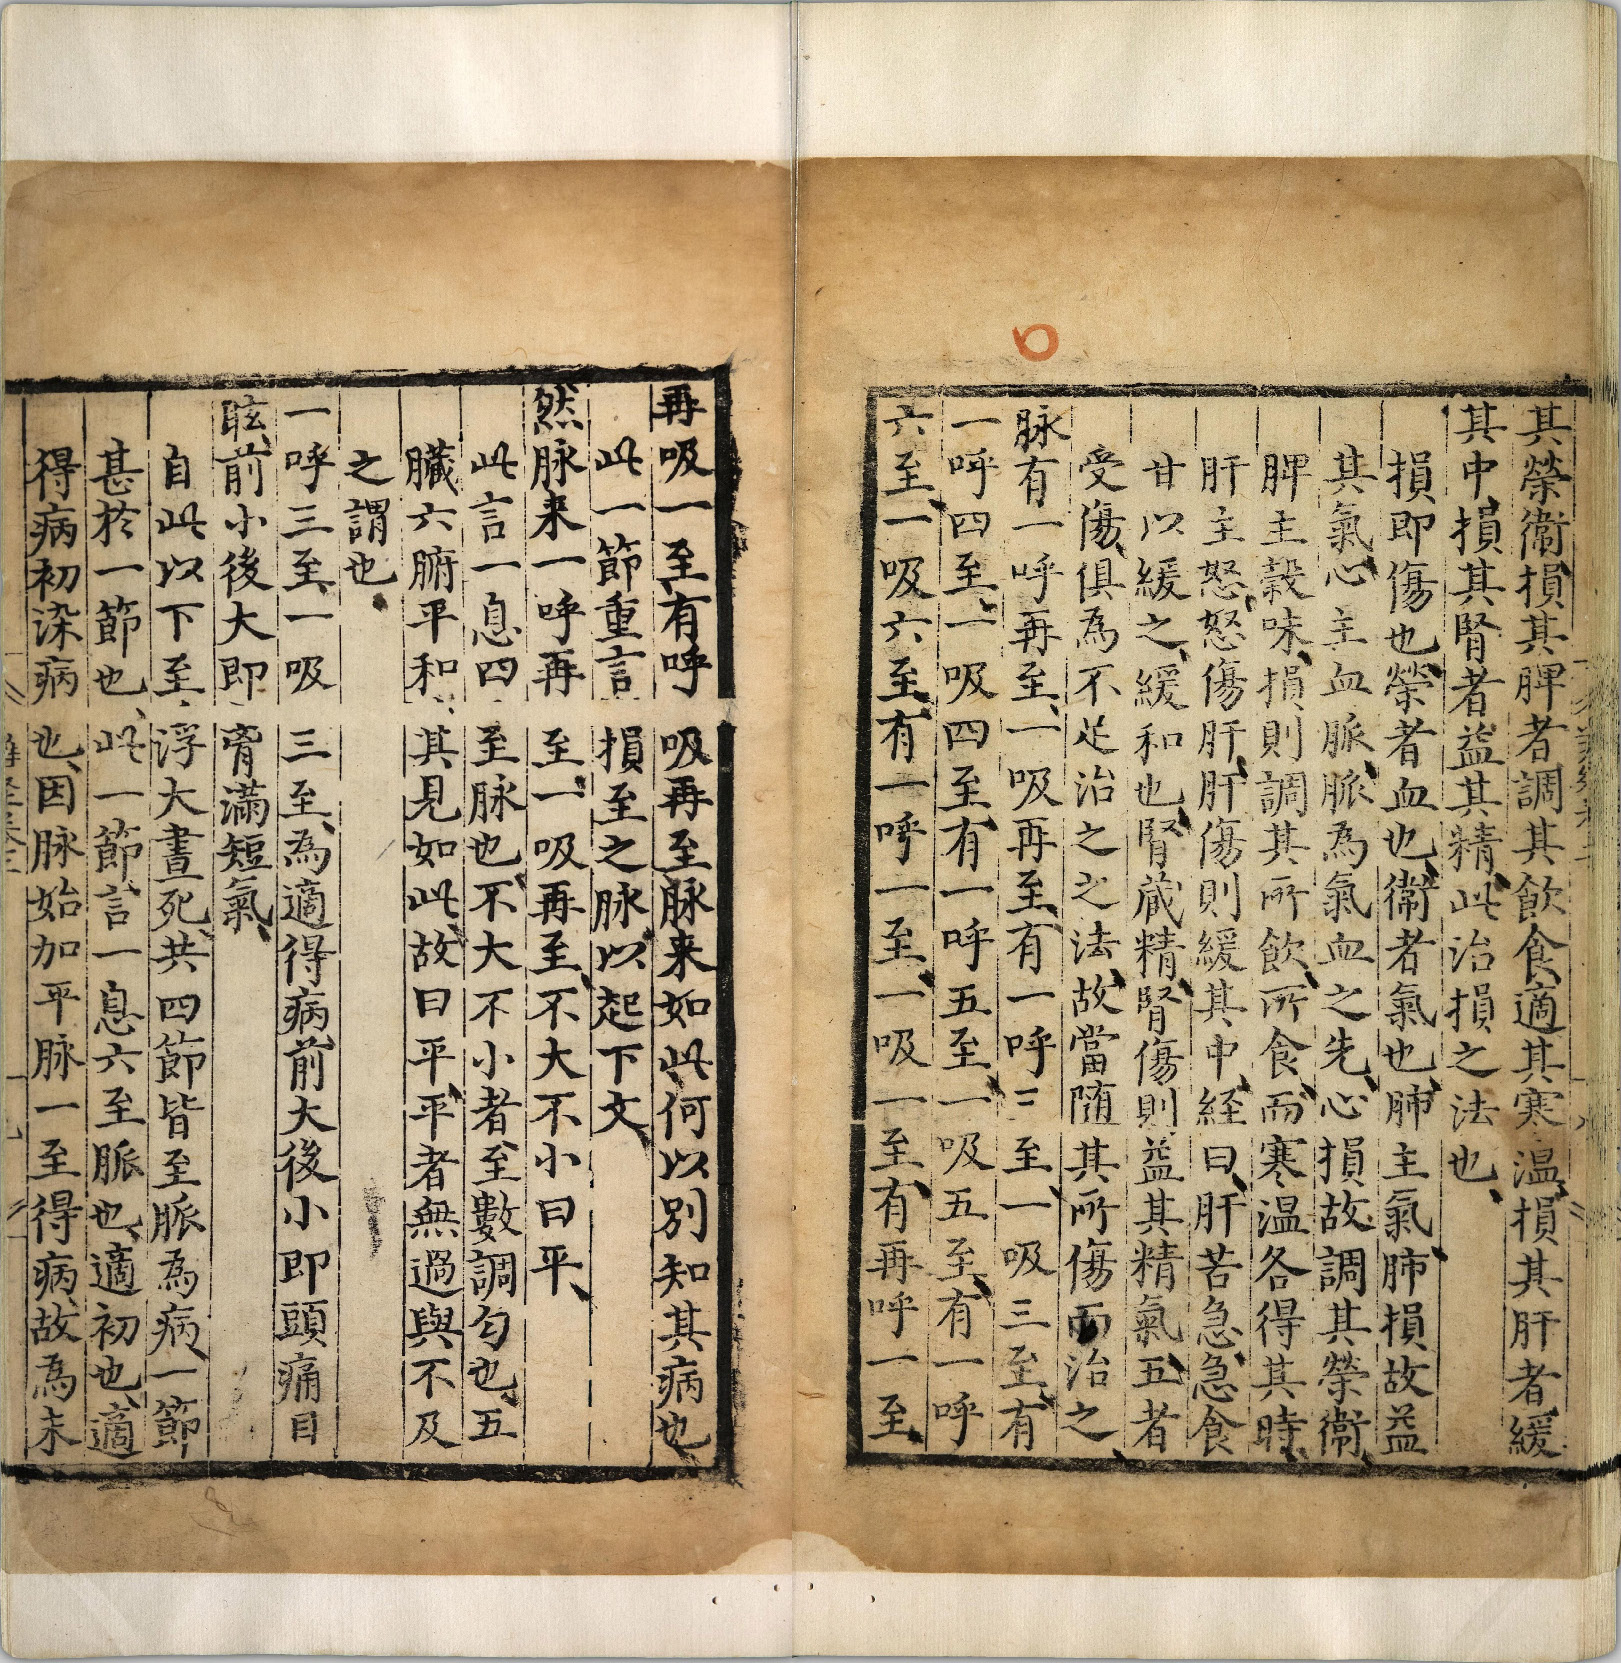 其榮衛損其脾者調其飲食適其寒温損其肝者緩
其中損其腎者益其精此治損之法也
損即傷也榮者血也衛者氣也肺主氣肺損故益
其氣心主血脈脈為氣血之先心損故調其榮衛
脾主穀味損則調其所飲所食而寒温各得其時
肝主怒怒傷肝肝傷則緩其中経曰肝苦急急食
甘以緩之緩和也腎蔵精腎傷則益其精氣五者
受傷俱為不足治之之法故當随其所傷而治之
脉有一呼再至一吸再至有一呼三至一吸三至有
一呼四至一吸四至有一呼五至一吸五至有一呼
六至一吸六至有一呼一至一吸一至有再呼一至
再吸一至有呼吸再至脉来如此何以別知其病也
此一節重言損至之脉以起下文
然脉来一呼再至一吸再至不大不小曰平
此言一息四至脉也不大不小者至數調匀也五
臓六腑平和其見如此故曰平平者無過與不及
之謂也
一呼三至一吸三至為適得病前大後小即頭痛目
眩前小後大即胷滿短氣
自此以下至浮大晝死共四節皆至脈為病一節
甚於一節也此一節言一息六至脈也適初也適
得病初染病也因脉始加平脉一至得病故為未